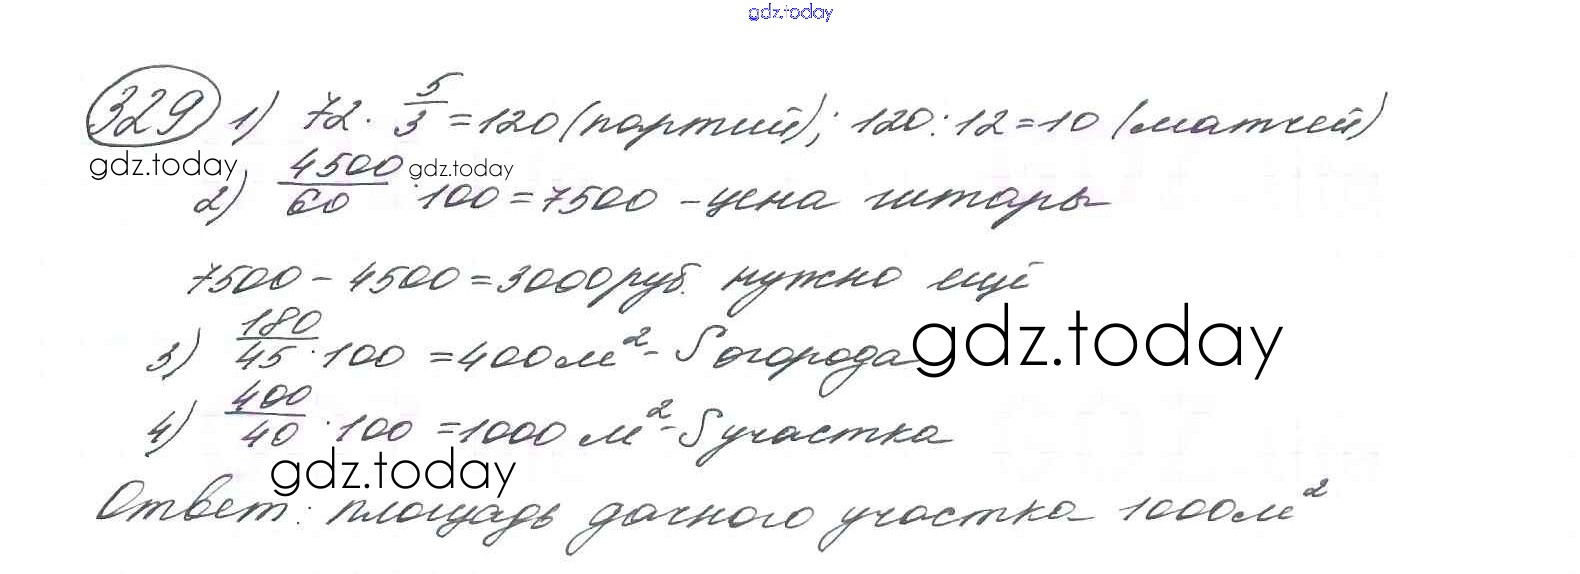 gdz.today
329 1) 72 · 5/3 = 120 (партий); 120 : 12 = 10 (матчей)
gdz.today gdz.today
2) 4500/60 · 100 = 7500 - цена гитары
7500 - 4500 = 3000 руб. нужно ещё
3) 180/45 · 100 = 400 м² - S огорода
gdz.today
4) 400/40 · 100 = 1000 м² - S участка
gdz.today
Ответ: площадь дачного участка 1000 м²